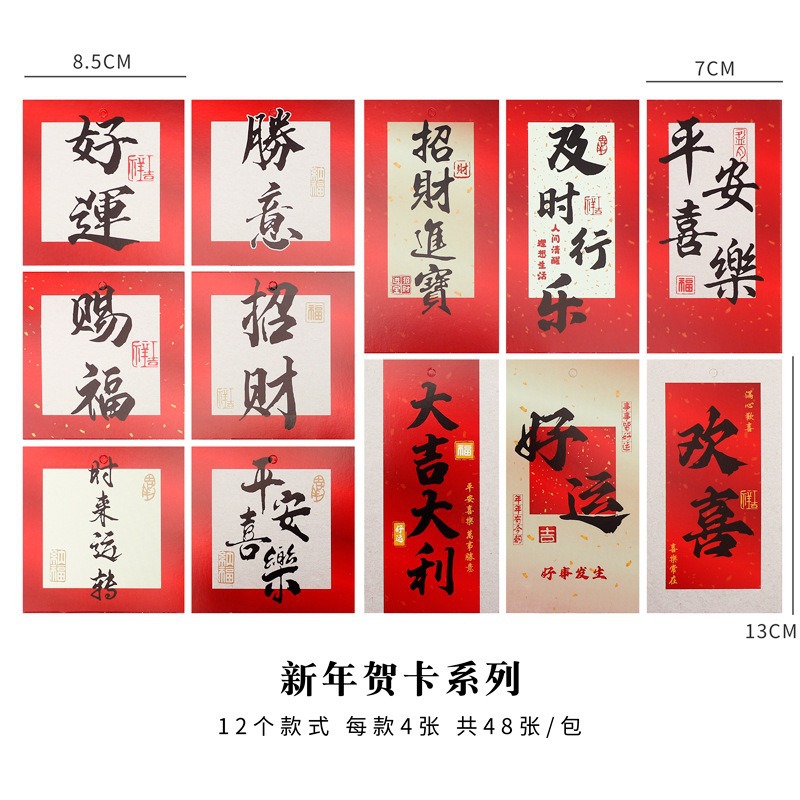 8.5CM
7CM
好運
祥吉
勝意
招財進寶
財
招財
及时行乐
人间清醒
理想生活
祥吉
平安喜樂
福
赐福
祥吉
招財
福
大吉大利
福
好运
平安喜樂 萬事勝意
好运
事事皆好运
年年有今朝
吉
好事发生
欢喜
满心歡喜
祥吉
喜樂常在
时来运转
平安喜樂
13CM
新年贺卡系列
12个款式 每款4张 共48张/包